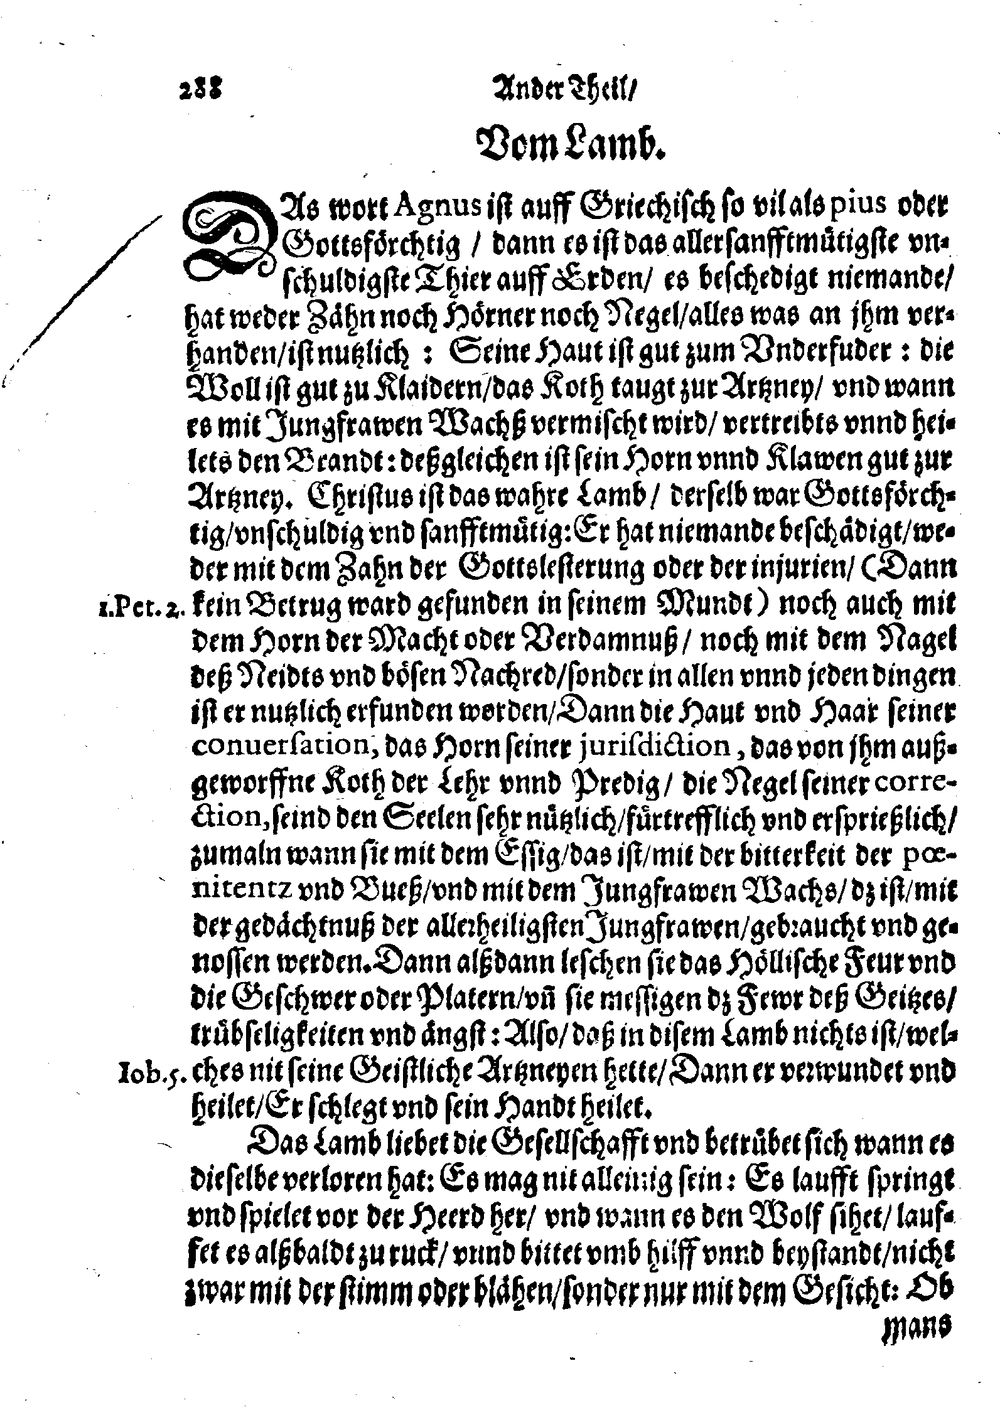 288 Ander Theil/
Vom Lamb.
DAs wort Agnus ist auff Griechisch so vil als pius oder
Gottsförchtig / dann es ist das allersanfftmütigste vn-
schuldigste Thier auff Erden/ es beschedigt niemande/
hat weder Zähn noch Hörner noch Negel/alles was an jhm ver-
handen/ist nutzlich : Seine Haut ist gut zum Vnderfuder : die
Woll ist gut zu Klaidern/das Koth taugt zur Artzney/ vnd wann
es mit Jungfrawen Wachß vermischt wird/ vertreibts vnnd hei-
lets den Brandt: deßgleichen ist sein Horn vnnd Klawen gut zur
Artzney. Christus ist das wahre Lamb/ derselb war Gottsförch-
tig/vnschuldig vnd sanfftmütig:Er hat niemande beschädigt/we-
der mit dem Zahn der Gottslesterung oder der injurien/ (Dann
1.Pet.2. kein Betrug ward gefunden in seinem Mundt) noch auch mit
dem Horn der Macht oder Verdamnuß/ noch mit dem Nagel
deß Neidts vnd bösen Nachred/sonder in allen vnnd jeden dingen
ist er nutzlich erfunden worden/Dann die Haut vnd Haar seiner
conuersation, das Horn seiner jurisdiction, das von jhm auß-
geworffne Koth der Lehr vnnd Predig/ die Negel seiner corre-
ction,seind den Seelen sehr nützlich/fürtrefflich vnd ersprießlich/
zumaln wann sie mit dem Essig/das ist/mit der bitterkeit der pœ-
nitentz vnd Bueß/vnd mit dem Jungfrawen Wachs/ dz ist/mit
der gedächtnuß der allerheiligsten Jungfrawen/gebraucht vnd ge-
nossen werden.Dann alßdann leschen sie das Höllische Feur vnd
die Geschwer oder Platern/vñ sie messigen dz Fewr deß Geitzes/
trübseligkeiten vnd ängst: Also/ daß in disem Lamb nichts ist/wel-
Iob.5. ches nit seine Geistliche Artzneyen hette/Dann er verwundet vnd
heilet/Er schlegt vnd sein Handt heilet.
Das Lamb liebet die Gesellschafft vnd betrübet sich wann es
dieselbe verloren hat: Es mag nit alleinig sein: Es laufft springt
vnd spielet vor der Heerd her/ vnd wann es den Wolf sihet/ lauf-
fet es alßbaldt zu ruck/ vnnd bittet vmb hilff vnnd beystandt/nicht
zwar mit der stimm oder blähen/sonder nur mit dem Gesicht: Ob
mans